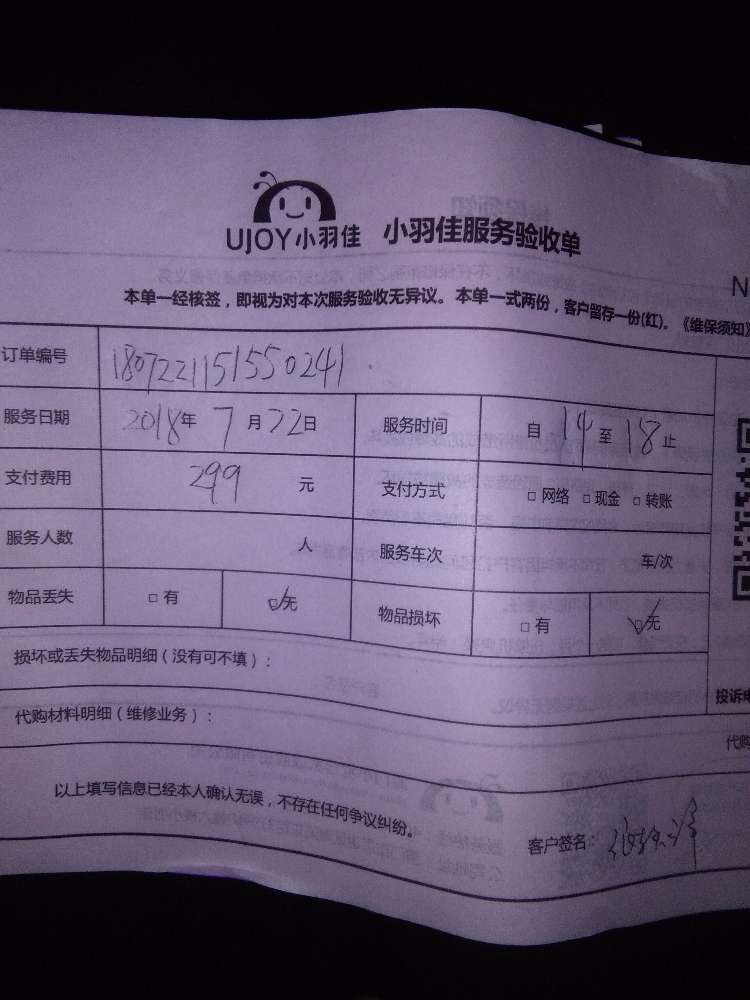 UJOY小羽佳 小羽佳服务验收单
N
本单一经核签，即视为对本次服务验收无异议。本单一式两份，客户留存一份(红)。《维保须知》
订单编号 1807221151550241
服务日期 2018年 7月22日 服务时间 自 14 至 18 止
支付费用 299 元 支付方式 □ 网络 □ 现金 □ 转账
服务人数 人 服务车次 车/次
物品丢失 □ 有 □ 无 物品损坏 □ 有 □ 无
损坏或丢失物品明细（没有可不填）：
投诉电
代购材料明细（维修业务）：
代购
以上填写信息已经本人确认无误，不存在任何争议纠纷。
客户签名：